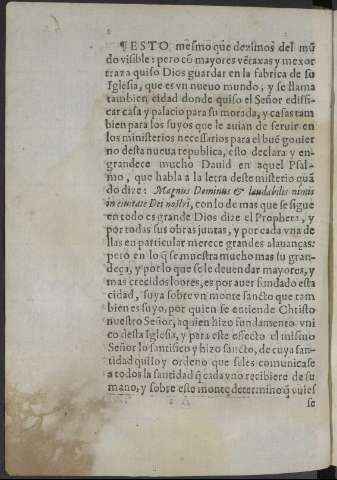 ¶ESTO mesmo que dezimos del mũ
do visible: pero cõ mayores vẽtaxas y mexor
traza quiso Dios guardar en la fabrica de su
Iglesia, que es vn nueuo mundo, y se llama
tambien cidad donde quiso el Señor edifi-
car casa y palacio para su morada, y casas tam
bien para los suyos que le auian de seruir en
los ministerios necessarios para el buẽ gouier
no desta nueua republica, esto declara y en-
grandece mucho Dauid en aquel Psal-
mo, que habla a la letra deste misterio quã
do dize: Magnus Dominus & laudabilis nimis
in ciuitate Dei nostri, con lo de mas que se sigue
en todo es grande Dios dize el Propheta, y
por todas sus obras juntas, y por cada vna de
llas en particular merece grandes alauanças:
pero en lo q̃ se muestra mucho mas su gran-
deça, y por lo que se le deuen dar mayores, y
mas crecidos loores, es por auer fundado esta
cidad, suya sobre vn monte sancto que tam
bien es suyo, por quien se entiende Christo
nuestro Señor, aquien hizo fundamento vni
co desta Iglesia, y para este efecto el mismo
Señor lo santifico y hizo sancto, de cuya san-
tidad quiso y ordeno que se les comunicase
a todos la santidad q̃ cada vno recibiere de su
mano, y sobre este monte determino q̃ vuies
se